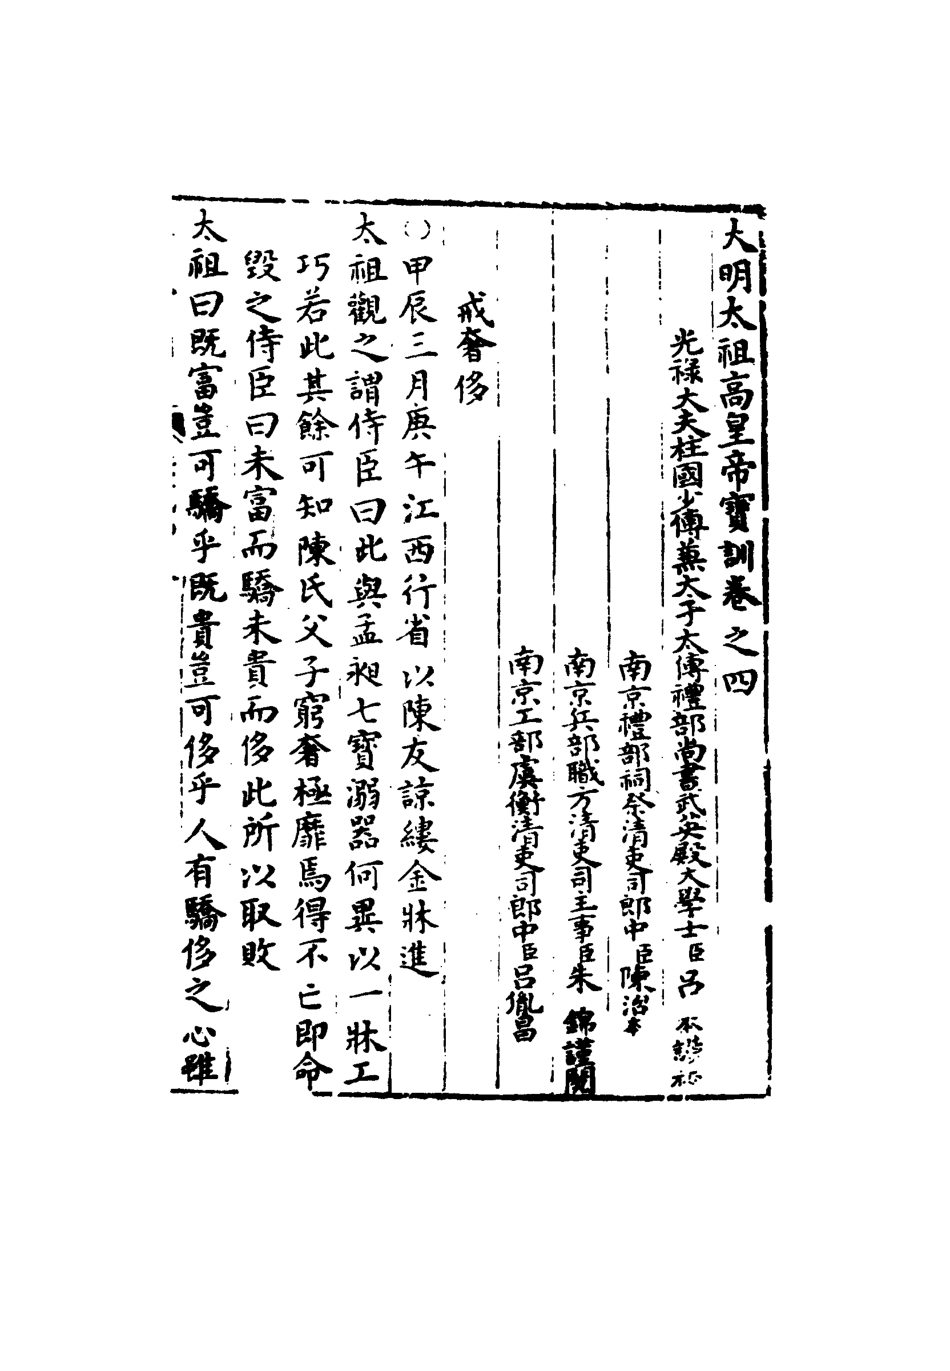 大明太祖高皇帝寶訓卷之四
光祿大夫柱國少傅兼太子太傅禮部尚書武英殿大學士臣呂本謹校
南京禮部祠祭清吏司郎中臣陳治本
南京兵部職方清吏司主事臣朱錦謹閱
南京工部虞衡清吏司郎中臣呂胤昌
戒奢侈
○甲辰三月庚午江西行省以陳友諒縷金牀進
太祖觀之謂侍臣曰此與孟昶七寶溺器何異以一牀工
巧若此其餘可知陳氏父子窮奢極靡焉得不亡即命
毀之侍臣曰未富而驕未貴而侈此所以取敗
太祖曰既富豈可驕乎既貴豈可侈乎人有驕侈之心雖